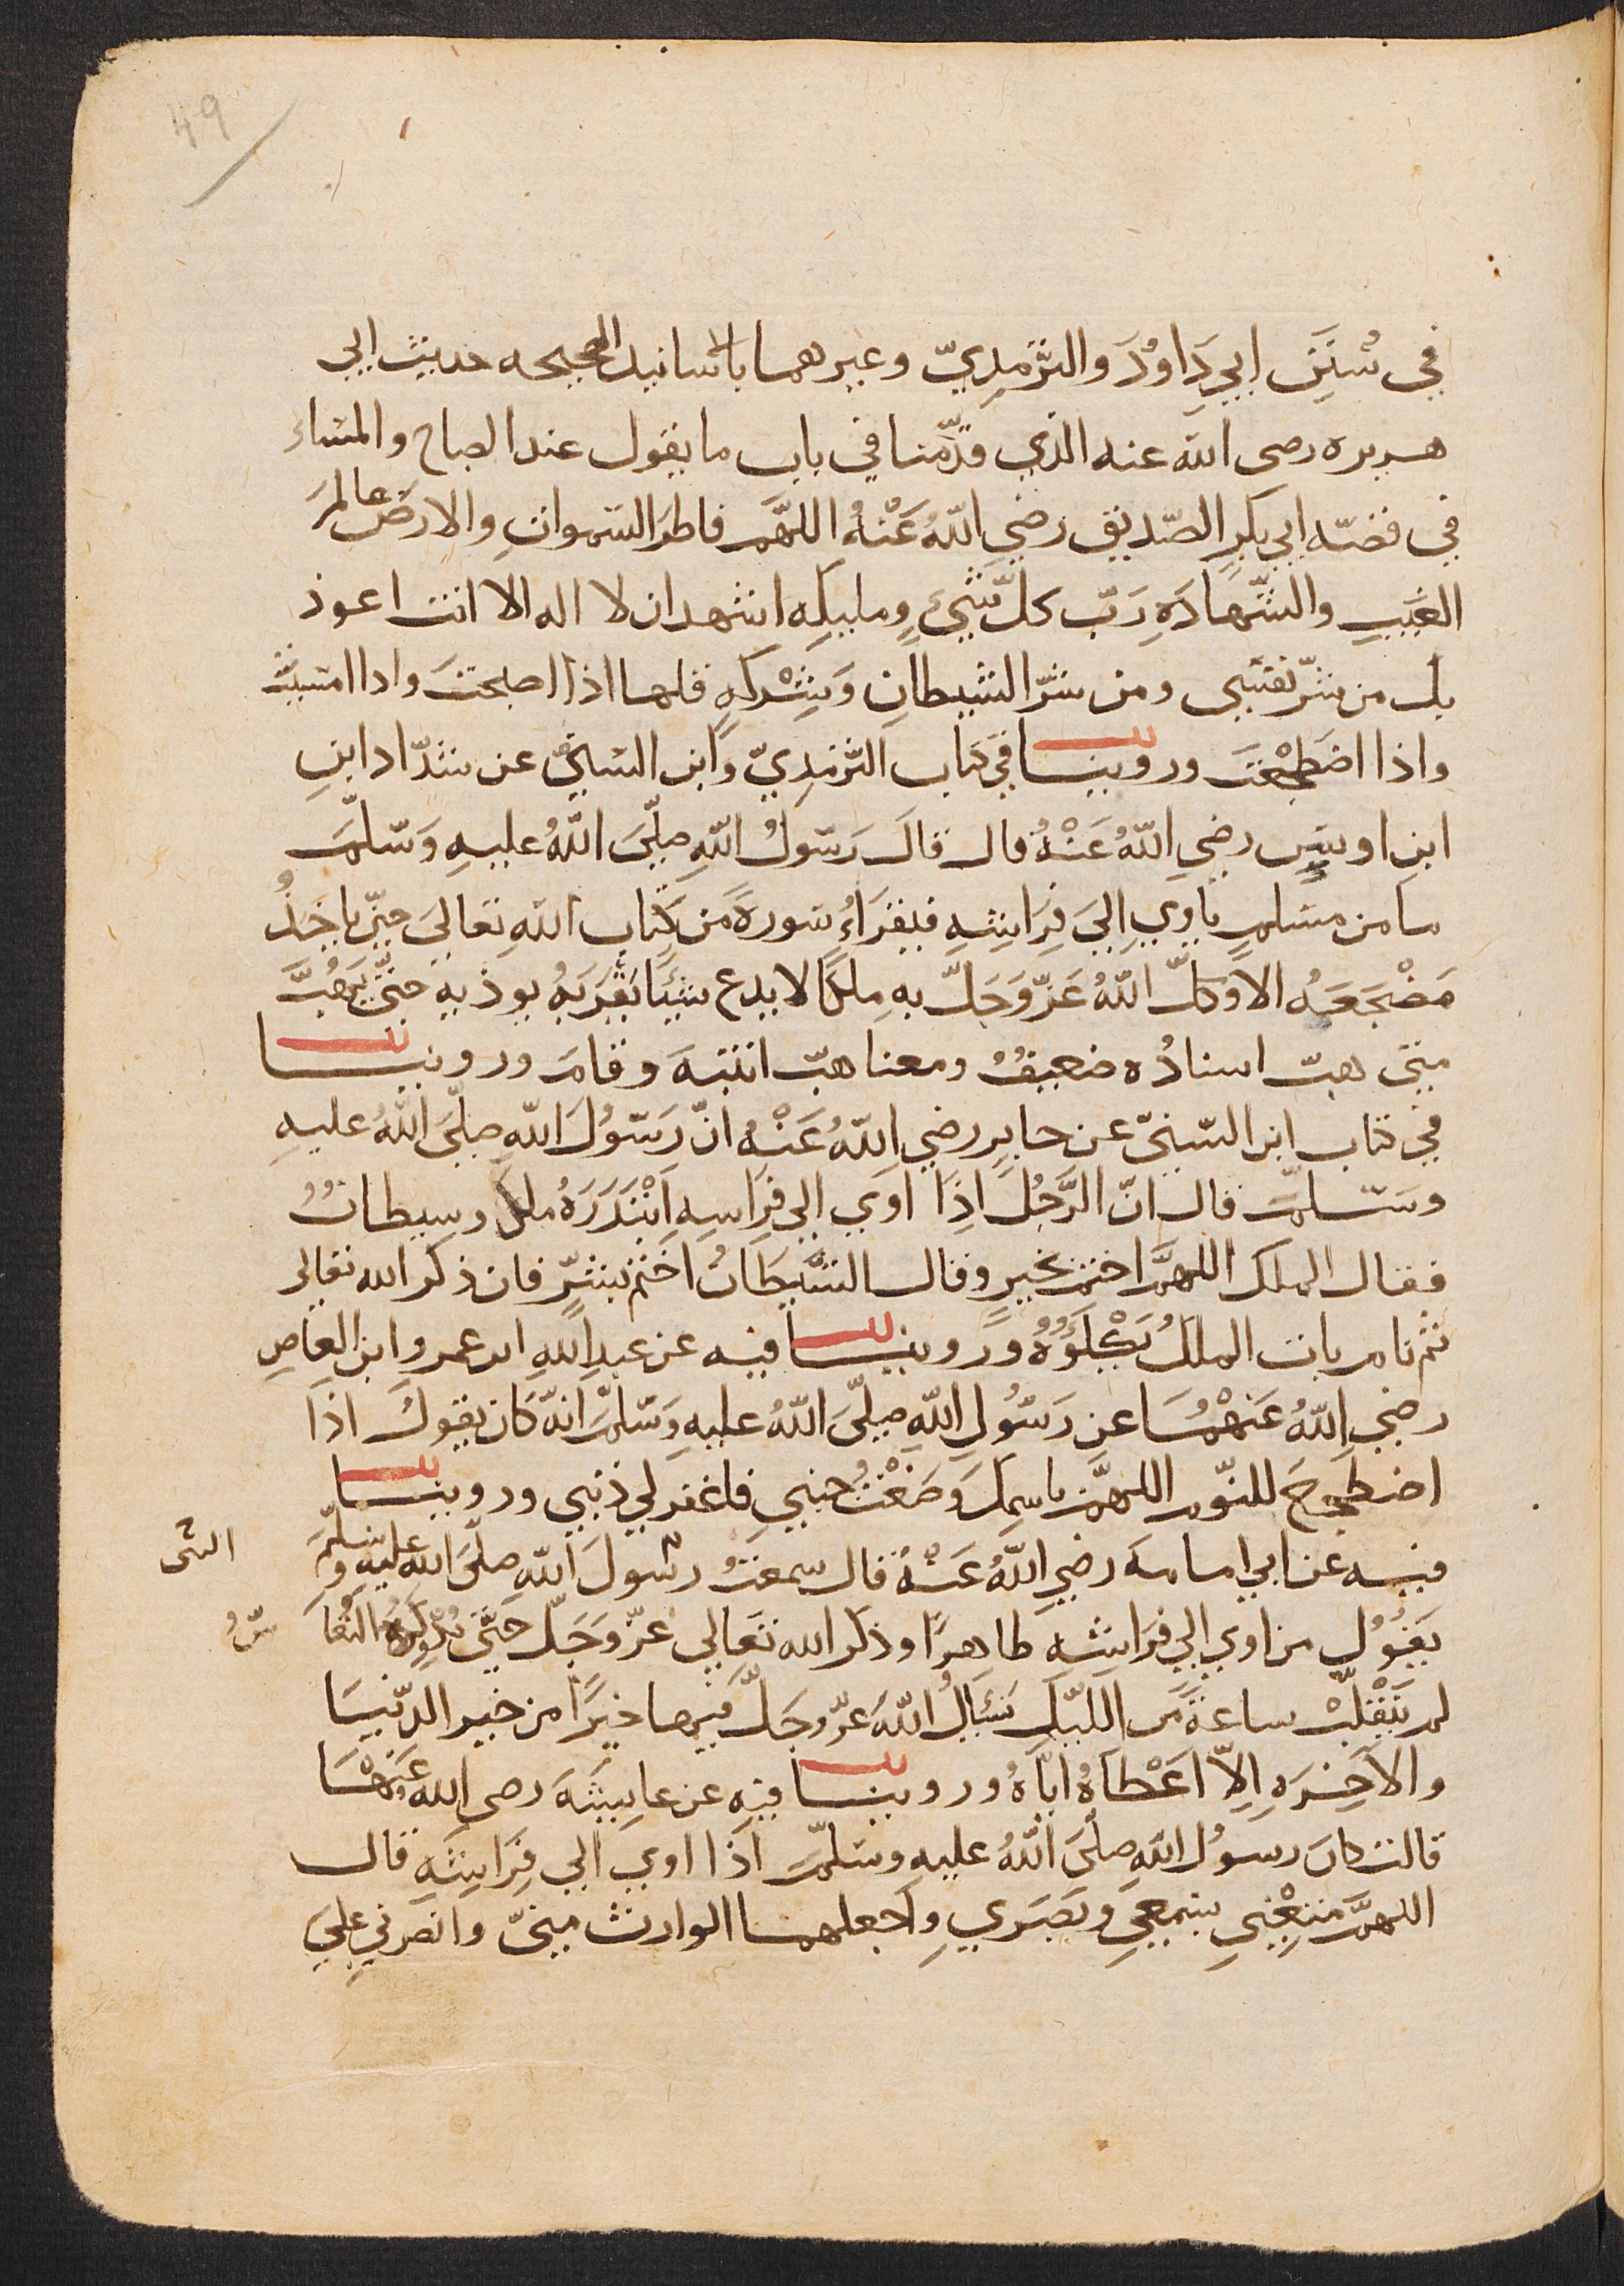 49
في سُنَنِ ابي دَاوُدَ والتِّرمِذِيّ وغيرهما بالاسانيد الصحيحه حديث ابي
هريره رضى الله عنه الذي قدَّمنا في باب ما يقول عند الصباح والمساء
في قصّه ابي بكرٍ الصّديق رَضي اللهُ عَنْهُ اللهُمَّ فاطرَ السّموات والارض عالمَ
الغَيبِ والشّهادَةِ رَبّ كلّ شَيْءٍ ومليكِه اشهد ان لا اله الا انت اعوذ
بك من شرّ نفسي ومن شرّ الشيطانِ وَشِرْكهِ قلها اذا اصبحتَ واذا امسيت
واذا اضطَجَعْتَ وروينا في كتاب التّرمذِيّ وابن السنيّ عن شدّاد ابنِ
ابنِ اوسٍ رضي اللهُ عَنْهُ قال قالَ رَسُولُ اللهِ صلّىَ اللهُ عليهِ وَسَلَّمَ
ما من مسلمٍ ياوي اِلىَ فِرَاشِهِ فيقرَاءُ سورةً من كتاب اللهِ تعاليَ حتّي ياخُذُ
مَضْجَعَهُ الا وَكّلَ اللهُ عَزّ وَجَلَّ بهِ مِلَكًا لا يدع شيئًا يَقْرَبَهُ يوذيهِ حتّيَ يَهُبَّ
متىَ هبّ اسنادُه ضعيفٌ ومعنا هبّ انتبهَ وقامَ وروينا
في كتاب ابن السّنيّ عن جابِرٍ رضي اللهُ عَنْهُ انّ رَسُولَ اللهِ صلّىَ اللهُ عليهِ
وسلّمَ قال انّ الرَّجُلَ اِذَا اوَي اِلي فِرَاشِهِ اَبْتَدَرَهُ ملكٌ وشيطانٌ
فقال الملكُ اللهُمَّ اختم بخيرٍ وقال الشَّيطَانُ اختم بشرٍّ فان ذكر الله تعالى
ثم نام بات الملكُ يَكْلَوُهُ وروينا فيه عن عبدِ اللهِ ابن عمرو ابن العاصِ
رضي اللهُ عَنهُمَا عن رَسُولِ اللهِ صلّىَ اللهُ عليهِ وَسلّمَ انّه كان يقولُ اذَا
اضطجع للنّوم اللهُمَّ باسمكَ وَضَعْتُ جنبي فاغفر لي ذنبي وروينا
فيه عن ابي امامه رضي اللهُ عَنْهُ قال سمعتُ رسُولَ اللهِ صلّىَ الله عليه وسلّمَ
يَقُولُ من اوي الي فرَاشه طاهِرًا وذكر الله تعالي عزّ وَجَلّ حَتَّى يُدْرِكَهُ النُعا
سُ
لم يَتَقَلّبْ ساعةً من اللّيل يَسْالُ اللهَ عزّ وجَلّ فيها خيرًا من خير الدّنيَا
والاخِرَه اِلاّ اعْطَاهُ ايّاهُ وروينا فيهِ عن عايشَهَ رضى الله عَنْهَا
قالت كانَ رسُولُ اللهِ صلّىَ اللهُ عليهِ وسَلّمَ اذَا اوي الي فِرَاشهِ قال
اللهُمَّ متِّعْني بسمعي وبَصَري واجعلهما الوارث منيّ وانصرني علىَ